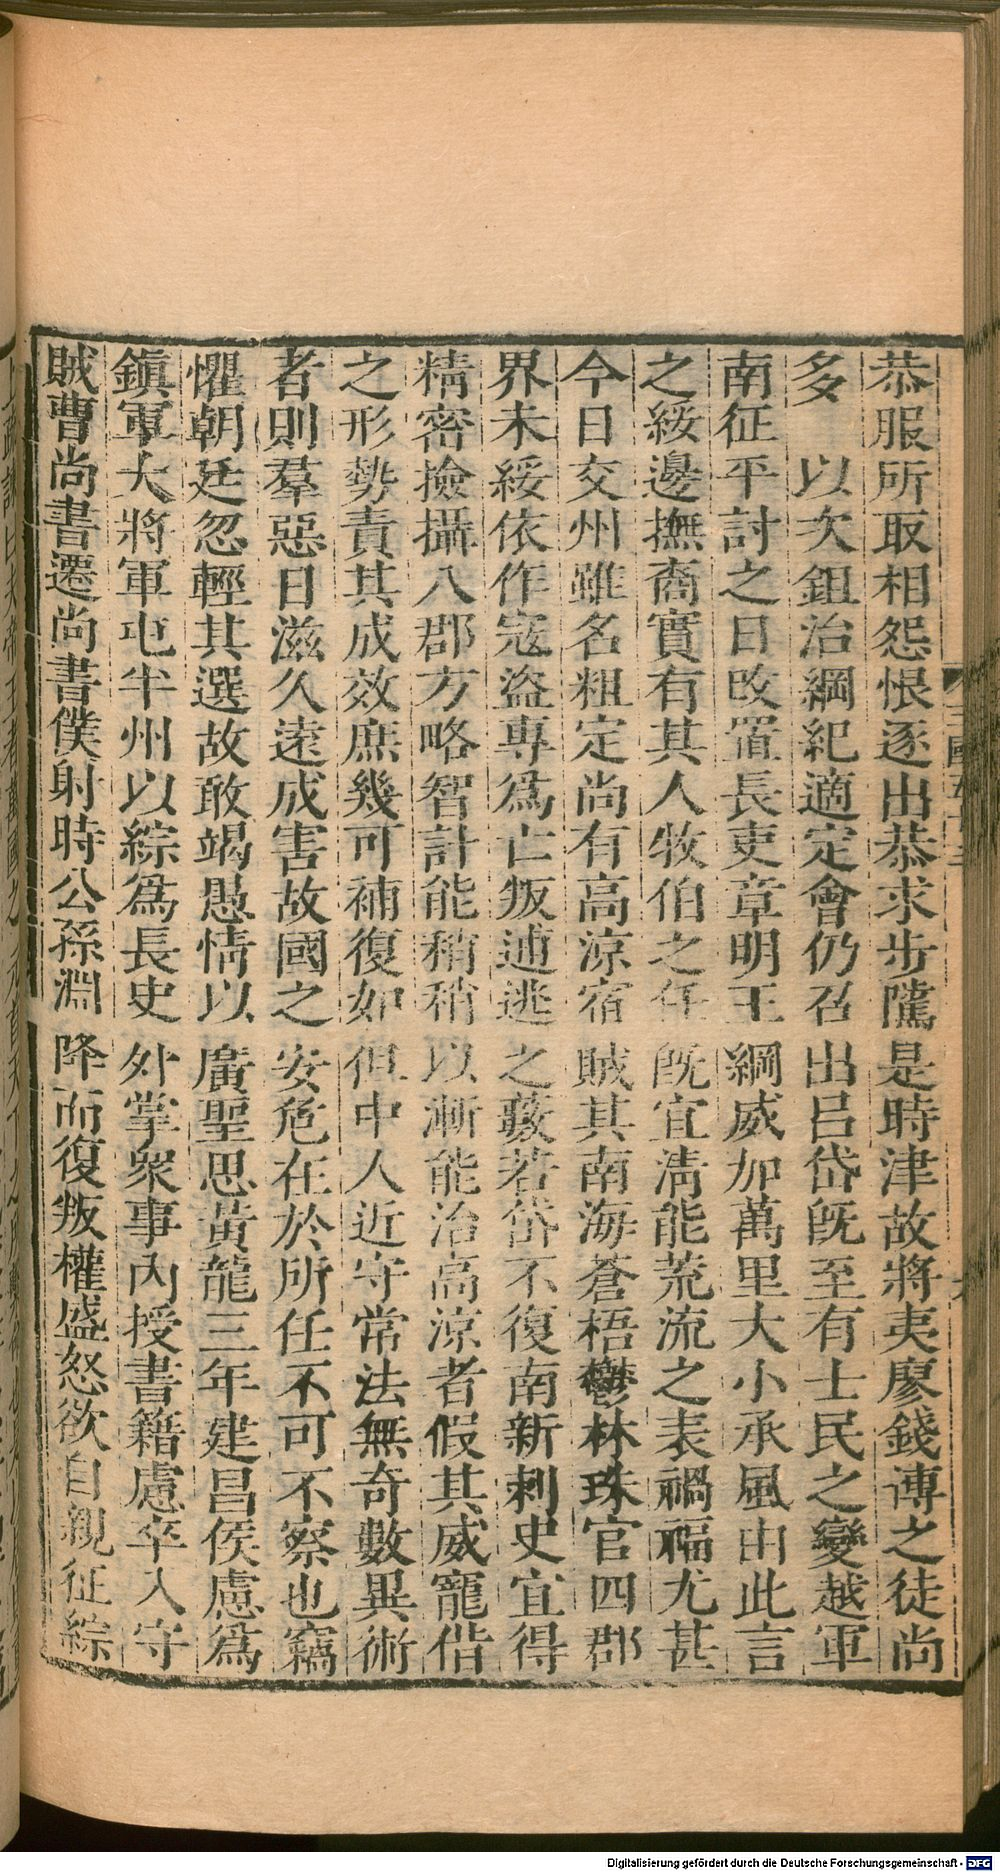 恭服所取相怨恨逐出恭求步隲是時津故將夷廖錢博之徒尚
多 以次鉏治綱紀適定會仍召出呂岱旣至有士民之變越軍
南征平討之日改置長吏章明王綱威加萬里大小承風由此言
之綏邊撫裔實有其人牧伯之任旣宜淸能荒流之表禍福尤甚
今日交州雖名粗定尚有高涼宿賊其南海蒼梧鬱林珠官四郡
界未綏依作寇盜專爲亡叛逋逃之藪若岱不復南新刺史宜得
精密撿攝八郡方略智計能稍稍以漸能治高涼者假其威寵偕
之形勢責其成效庶幾可補復如但中人近守常法無奇數異術
者則羣惡日滋久遠成害故國之安危在於所任不可不察也竊
懼朝廷忽輕其選故敢竭愚情以廣聖思黃龍三年建昌侯慮爲
鎭軍大將軍屯半州以綜爲長史外掌衆事內授書籍慮卒入守
賊曹尚書遷尚書僕射時公孫淵降而復叛權盛怒欲自親征綜
Digitalisierung gefördert durch die Deutsche Forschungsgemeinschaft - DFG